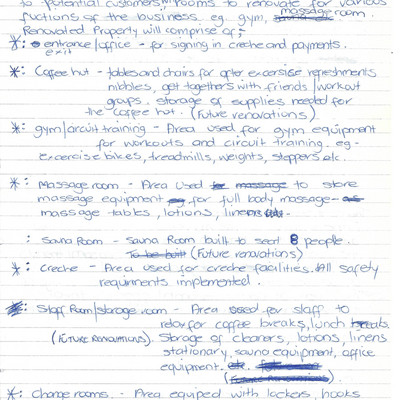 to potential customers, rooms to renovate for various
fuctions of the business. eg. gym, massage room.
Renovated Property will comprise of;
*: entrance/office - for signing in creche and payments.
exit
*: Coffee hut - tables and chairs for after excersise refreshments
nibbles, get togethers with friends/workout
groups. storage of supplies needed for
the coffee hut. (Future renovations)
*: gym/circuit training - Area used for gym equipment
for workouts and circuit training. eg -
excercise bikes, treadmills, weights, steppers etc.
*: Massage room. - Area used to store
massage equipment for full body massage -
massage tables, lotions, linens
: Sauna Room - Sauna Room built to seat 8 people.
To be built (Future renovations)
*: Creche - Area used for creche facilities. All safety
requirments implemented.
: Staff Room/storage room - Area used for staff to
relax for coffee breaks, lunch breaks.
(Future Renovations). Storage of cleaners, lotions, linens
stationary, sauna equipment, office
equipment.
(Future renovations)
*: Change rooms. - Area equiped with lockers, hooks